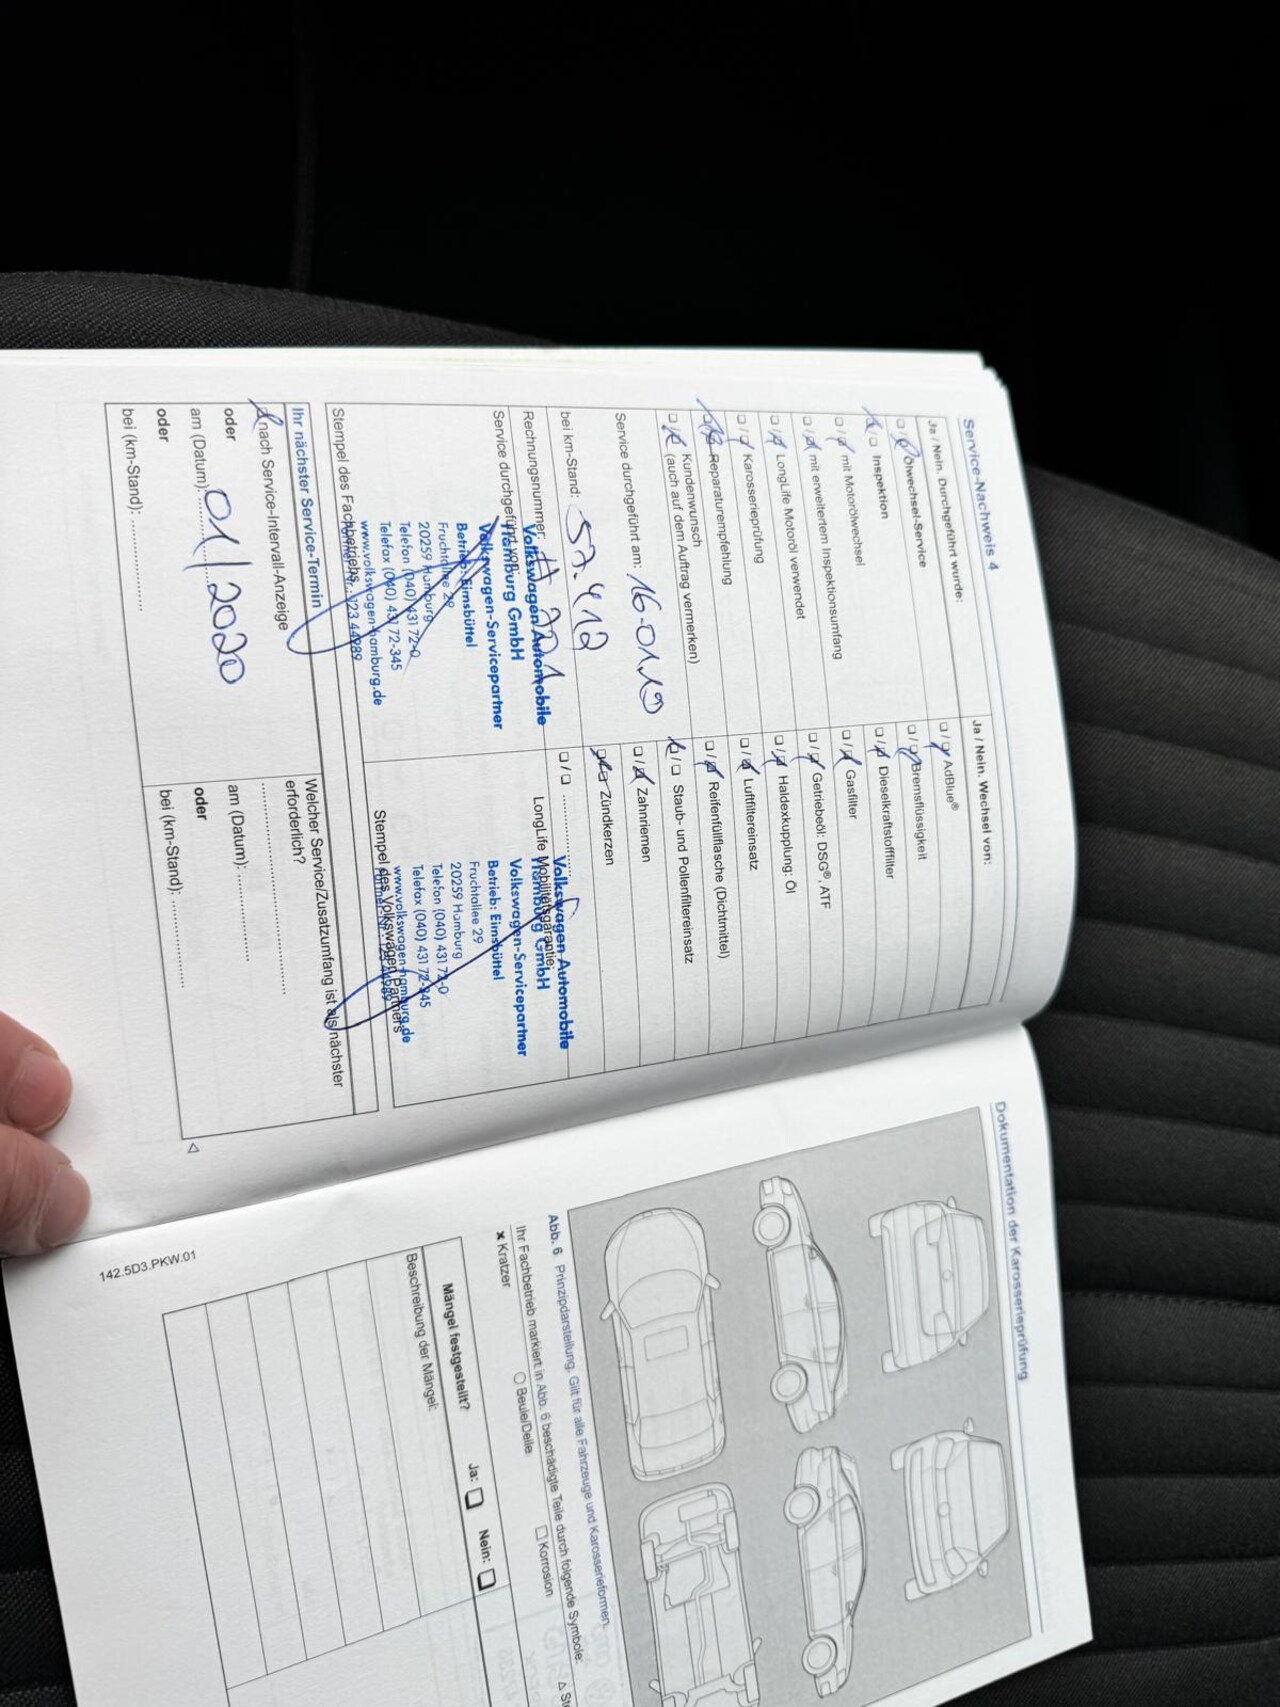 Service-Nachweis 4
Ja / Nein. Durchgeführt wurde:
Ölwechsel-Service
Inspektion
mit Motorölwechsel
mit erweitertem Inspektionsumfang
LongLife Motoröl verwendet
Karosserieprüfung
Reparaturempfehlung
Kundenwunsch
(auch auf dem Auftrag vermerken)
Service durchgeführt am: 16-01.19
bei km-Stand: 57.412
Rechnungsnummer:
Service durchgeführt von:
Volkswagen Automobile
Hamburg GmbH
Volkswagen-Servicepartner
Betrieb: Eimsbüttel
Fruchtallee 29
20259 Hamburg
Telefon (040) 431 72-0
Telefax (040) 431 72-345
www.volkswagen-hamburg.de
Stempel des Fachbetriebs
Ja / Nein. Wechsel von:
AdBlue®
Bremsflüssigkeit
Dieselkraftstofffilter
Gasfilter
Getriebeöl: DSG®, ATF
Haldexkupplung: Öl
Luftfiltereinsatz
Reifenfüllflasche (Dichtmittel)
Staub- und Pollenfiltereinsatz
Zahnriemen
Zündkerzen
LongLife Mobilitätsgarantie:
Volkswagen Automobile
Hamburg GmbH
Volkswagen-Servicepartner
Betrieb: Eimsbüttel
Fruchtallee 29
20259 Hamburg
Telefon (040) 431 72-0
Telefax (040) 431 72-345
www.volkswagen-hamburg.de
Stempel des Volkswagen Partners
Ihr nächster Service-Termin
nach Service-Intervall-Anzeige
oder
am (Datum): 01/2020
oder
bei (km-Stand):
Welcher Service/Zusatzumfang ist als nächster
erforderlich?
am (Datum):
oder
bei (km-Stand):
Dokumentation der Karosserieprüfung
Abb. 6 Prinzipdarstellung: Gilt für alle Fahrzeuge und Karosserieformen.
Ihr Fachbetrieb markiert in Abb. 6 beschädigte Teile durch folgende Symbole:
Kratzer
Beule/Delle
Korrosion
Mängel festgestellt? Ja: Nein:
Beschreibung der Mängel:
142.5D3.PKW.01